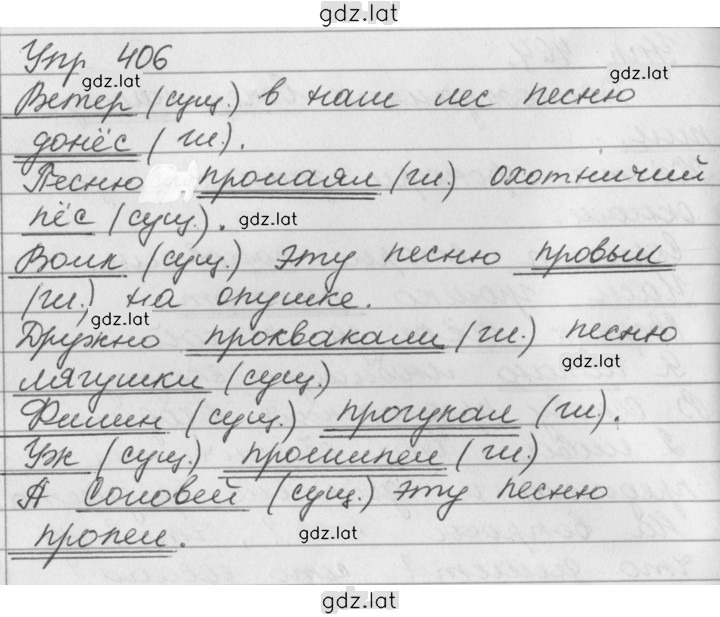 gdz.lat
Упр 406
gdz.lat
gdz.lat
Ветер (сущ.) в наш лес песню
донёс (гл.).
Песню пролаял (гл.) охотничий
пёс (сущ.). gdz.lat
Волк (сущ.) эту песню провыл
(гл.) на опушке.
gdz.lat
Дружно проквакали (гл.) песню
gdz.lat
лягушки (сущ.)
Филин (сущ.) прогукал (гл.).
Уж (сущ.) прошипел (гл.)
А Соловей (сущ.) эту песню
пропел. gdz.lat
gdz.lat